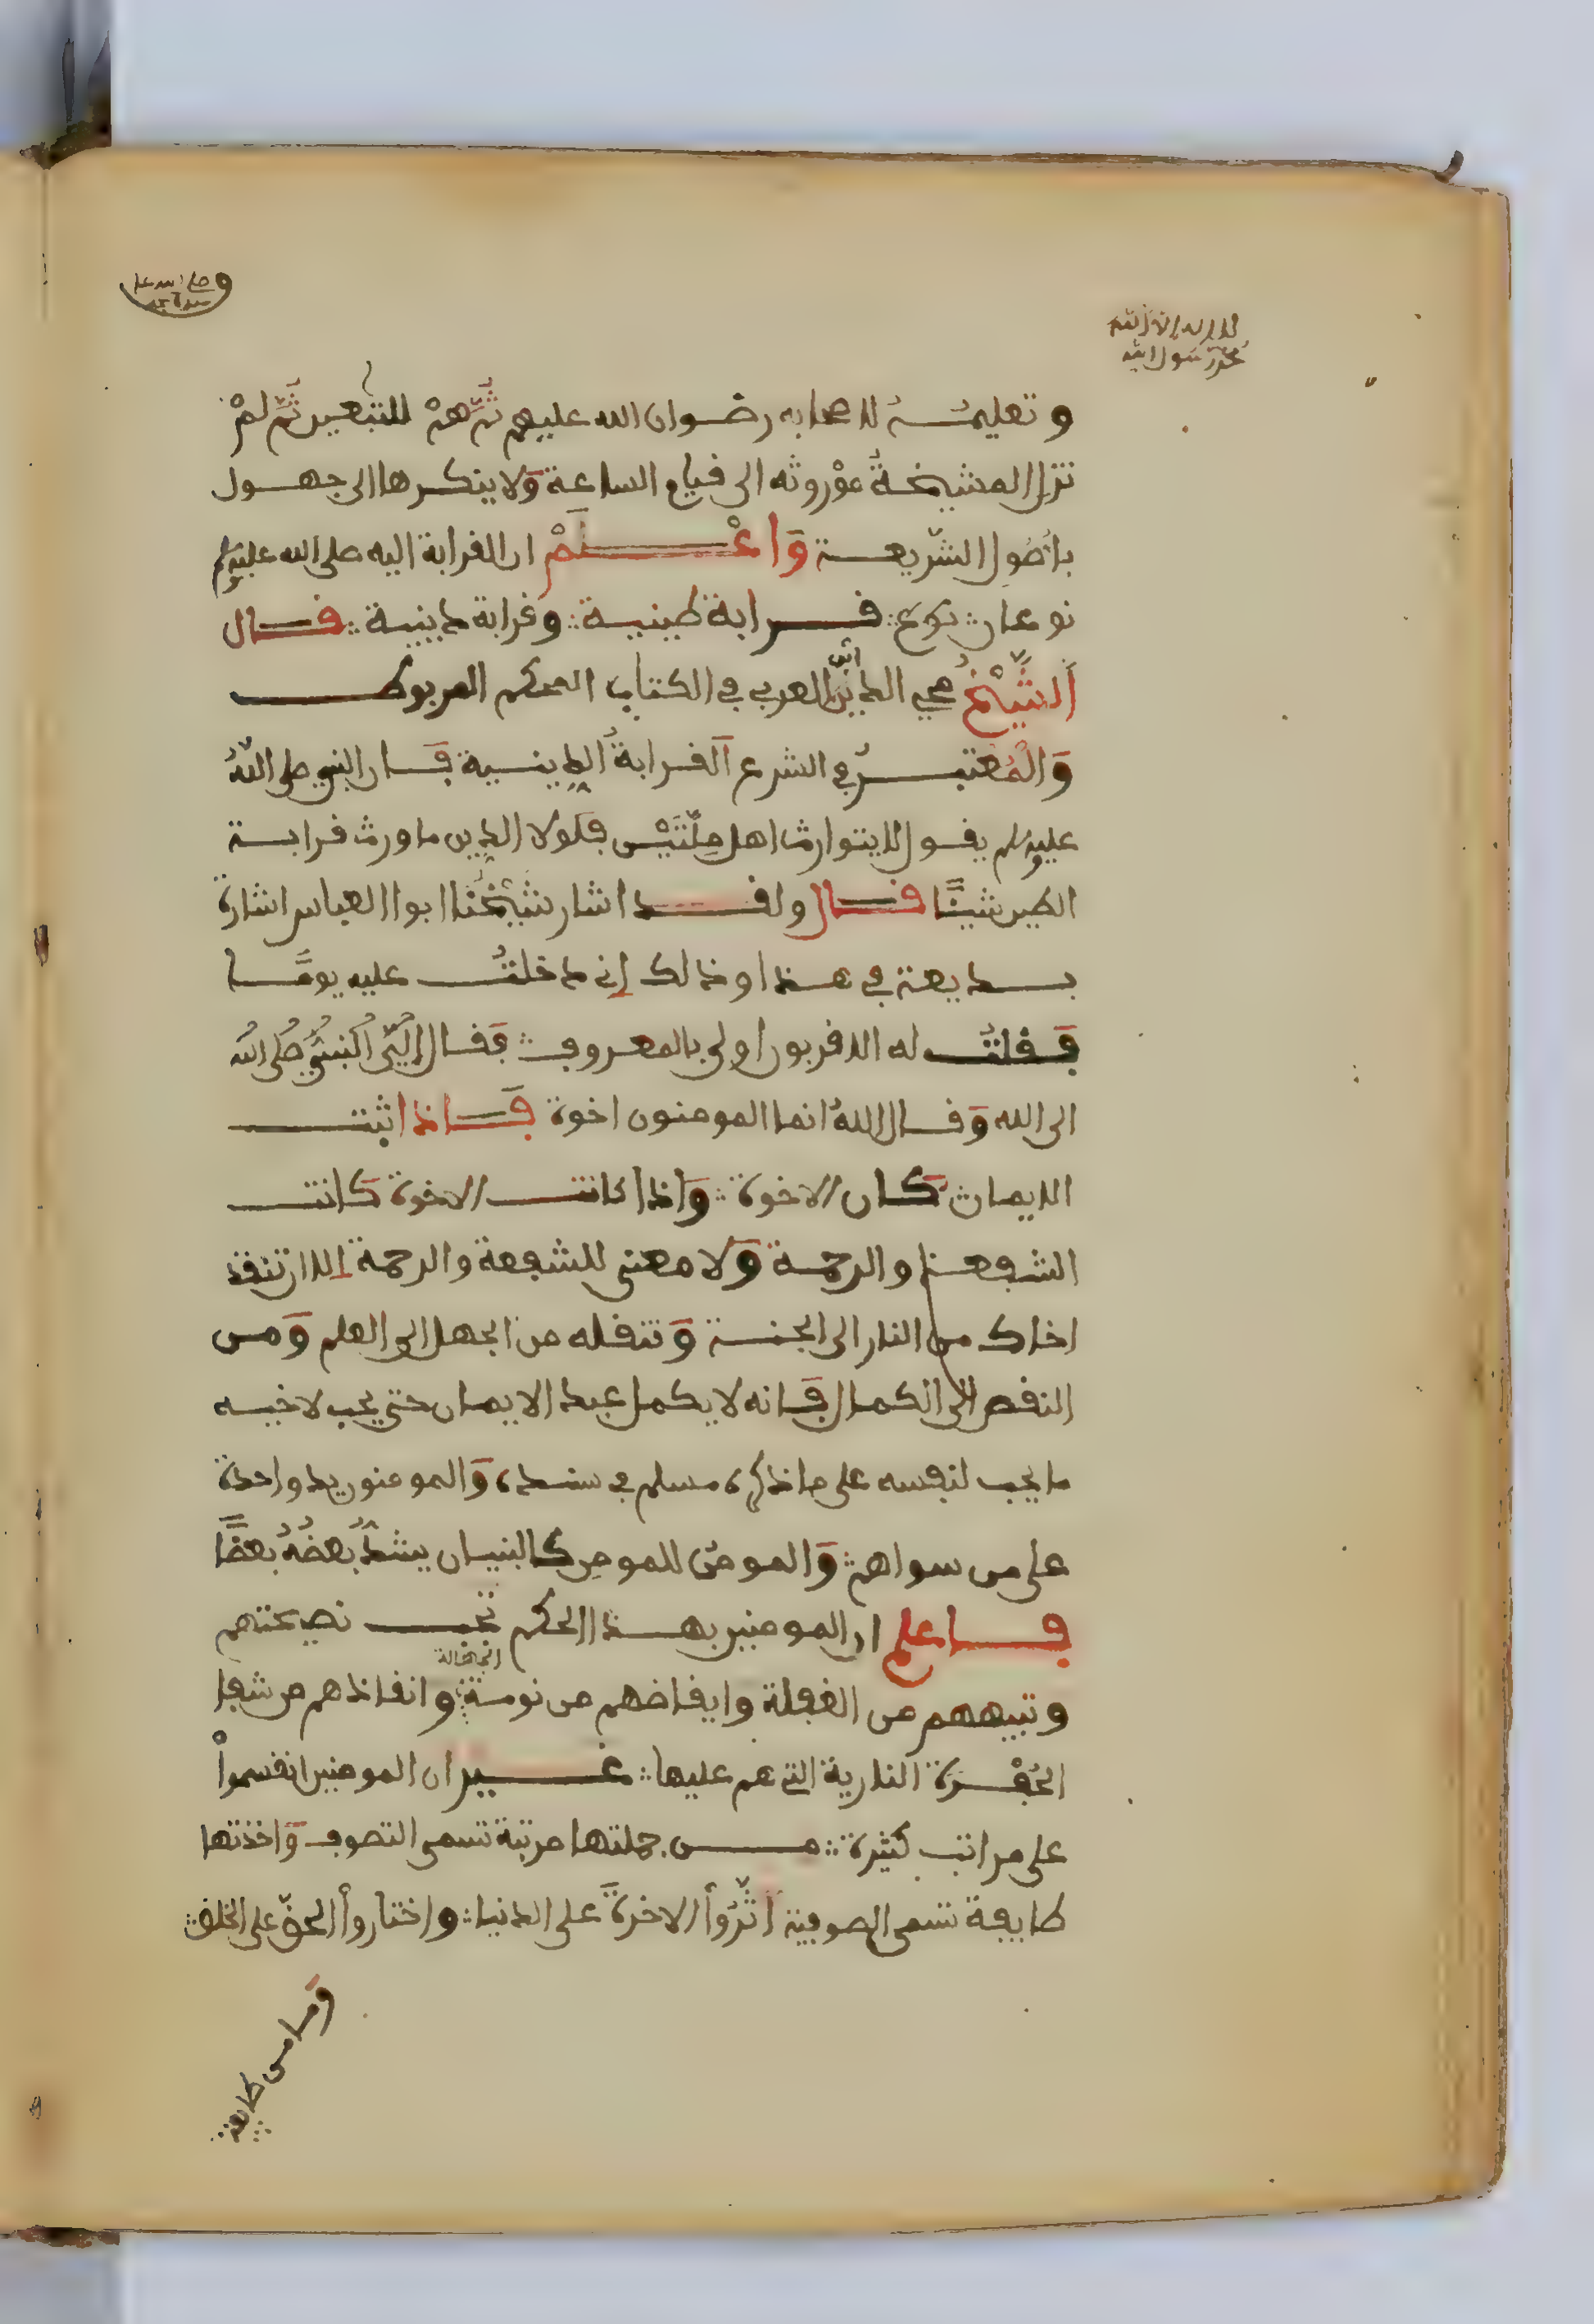 وصلى الله على
سيدنا محمد
لا إله إلا الله
محمد رسول الله
وتعليمه لاصحابه رضوان الله عليهم ثم هم للتبعين ثم لم
تزل المشيخة موروثه الى قيام الساعة ولا ينكرها الى جهول
باصول الشريعة واعلم ان القرابة اليه صلى الله عليه وسلم
نوعان نوع قرابة طينية وقرابة دينية قال
الشيخ محي الدين ابن العربي في الكتاب المحكم المربوط
والمعتبر في الشرع القرابة الدينية فان النبي صلى الله
عليه وسلم يقول لا يتوارث اهل ملتين فلولا الدين ما ورث قرابة
الطين شيئا قال ولقد اشار شيخنا ابوا العباس اشارة
بديعة في هذا وذالك اني دخلت عليه يوما
فقلت له الاقربون اولى بالمعروف فقال لي النبي صلى الله
الى الله وقال الله انما المومنون اخوة فاذا ثبت
الايمان كان الاخوة واذا كانت الاخوة كانت
الشفعة والرحمة ولا معنى للشفعة والرحمة الا ان تنقذ
اخاك من النار الى الجنة وتنقله من الجهل الى العلم ومن
النقص الى الكمال فانه لا يكمل عبد الايمان حتى يحب لاخيه
ما يحب لنفسه على ما ذكره مسلم في سنده والمومنون يد واحدة
على من سواهم والمومن للمومن كالبنيان يشد بعضه بعضا
فاعلم ان المومنين بهذا الحكم تجب نصيحتهم
وتبيههم من الغفلة وايقاضهم من نومة الجهالة وانقاذهم من شفا
الحفرة النارية التي هم عليها غير ان المومنين انقسموا
على مراتب كثيرة من جملتها مرتبة تسمى التصوف واخذتها
طايفة تسمى الصوفية اثروا الاخرة على الدنيا واختاروا الحق على الخلق
وما من طايفة